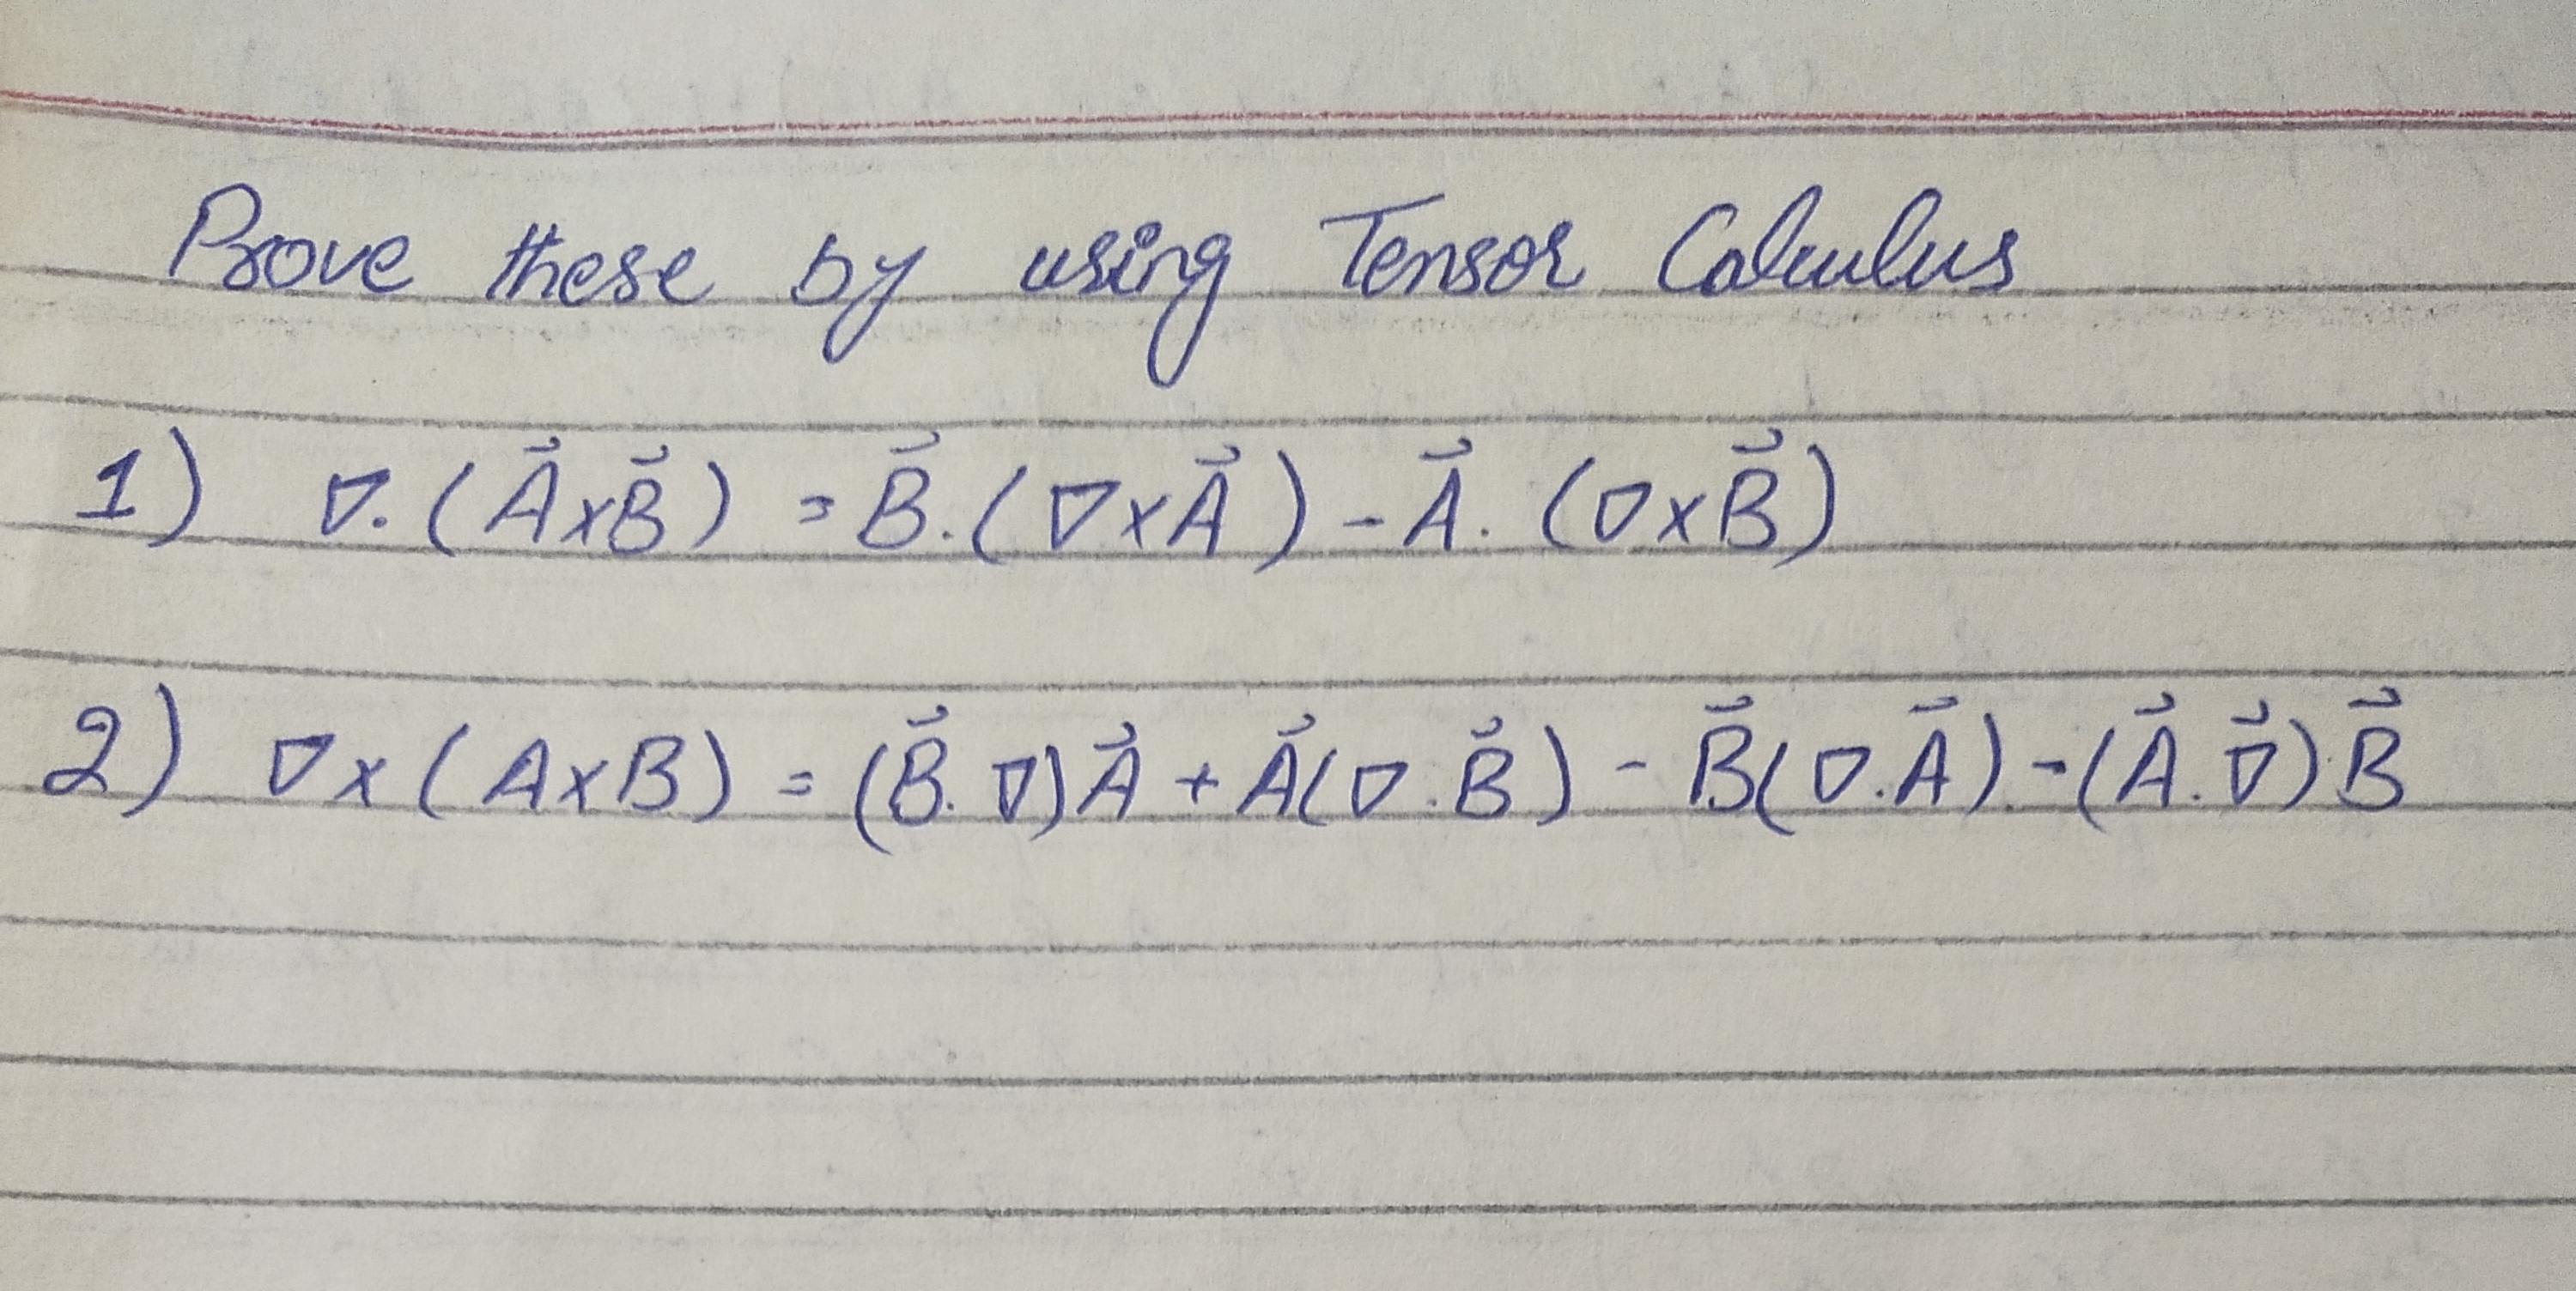 Prove these by using Tensor Calculus
1) ∇.(A⃗xB⃗) = B⃗.(∇xA⃗) - A⃗.(∇xB⃗)
2) ∇x(AxB) = (B⃗.∇)A⃗ + A⃗(∇.B⃗) - B⃗(∇.A⃗) - (A⃗.∇⃗)B⃗